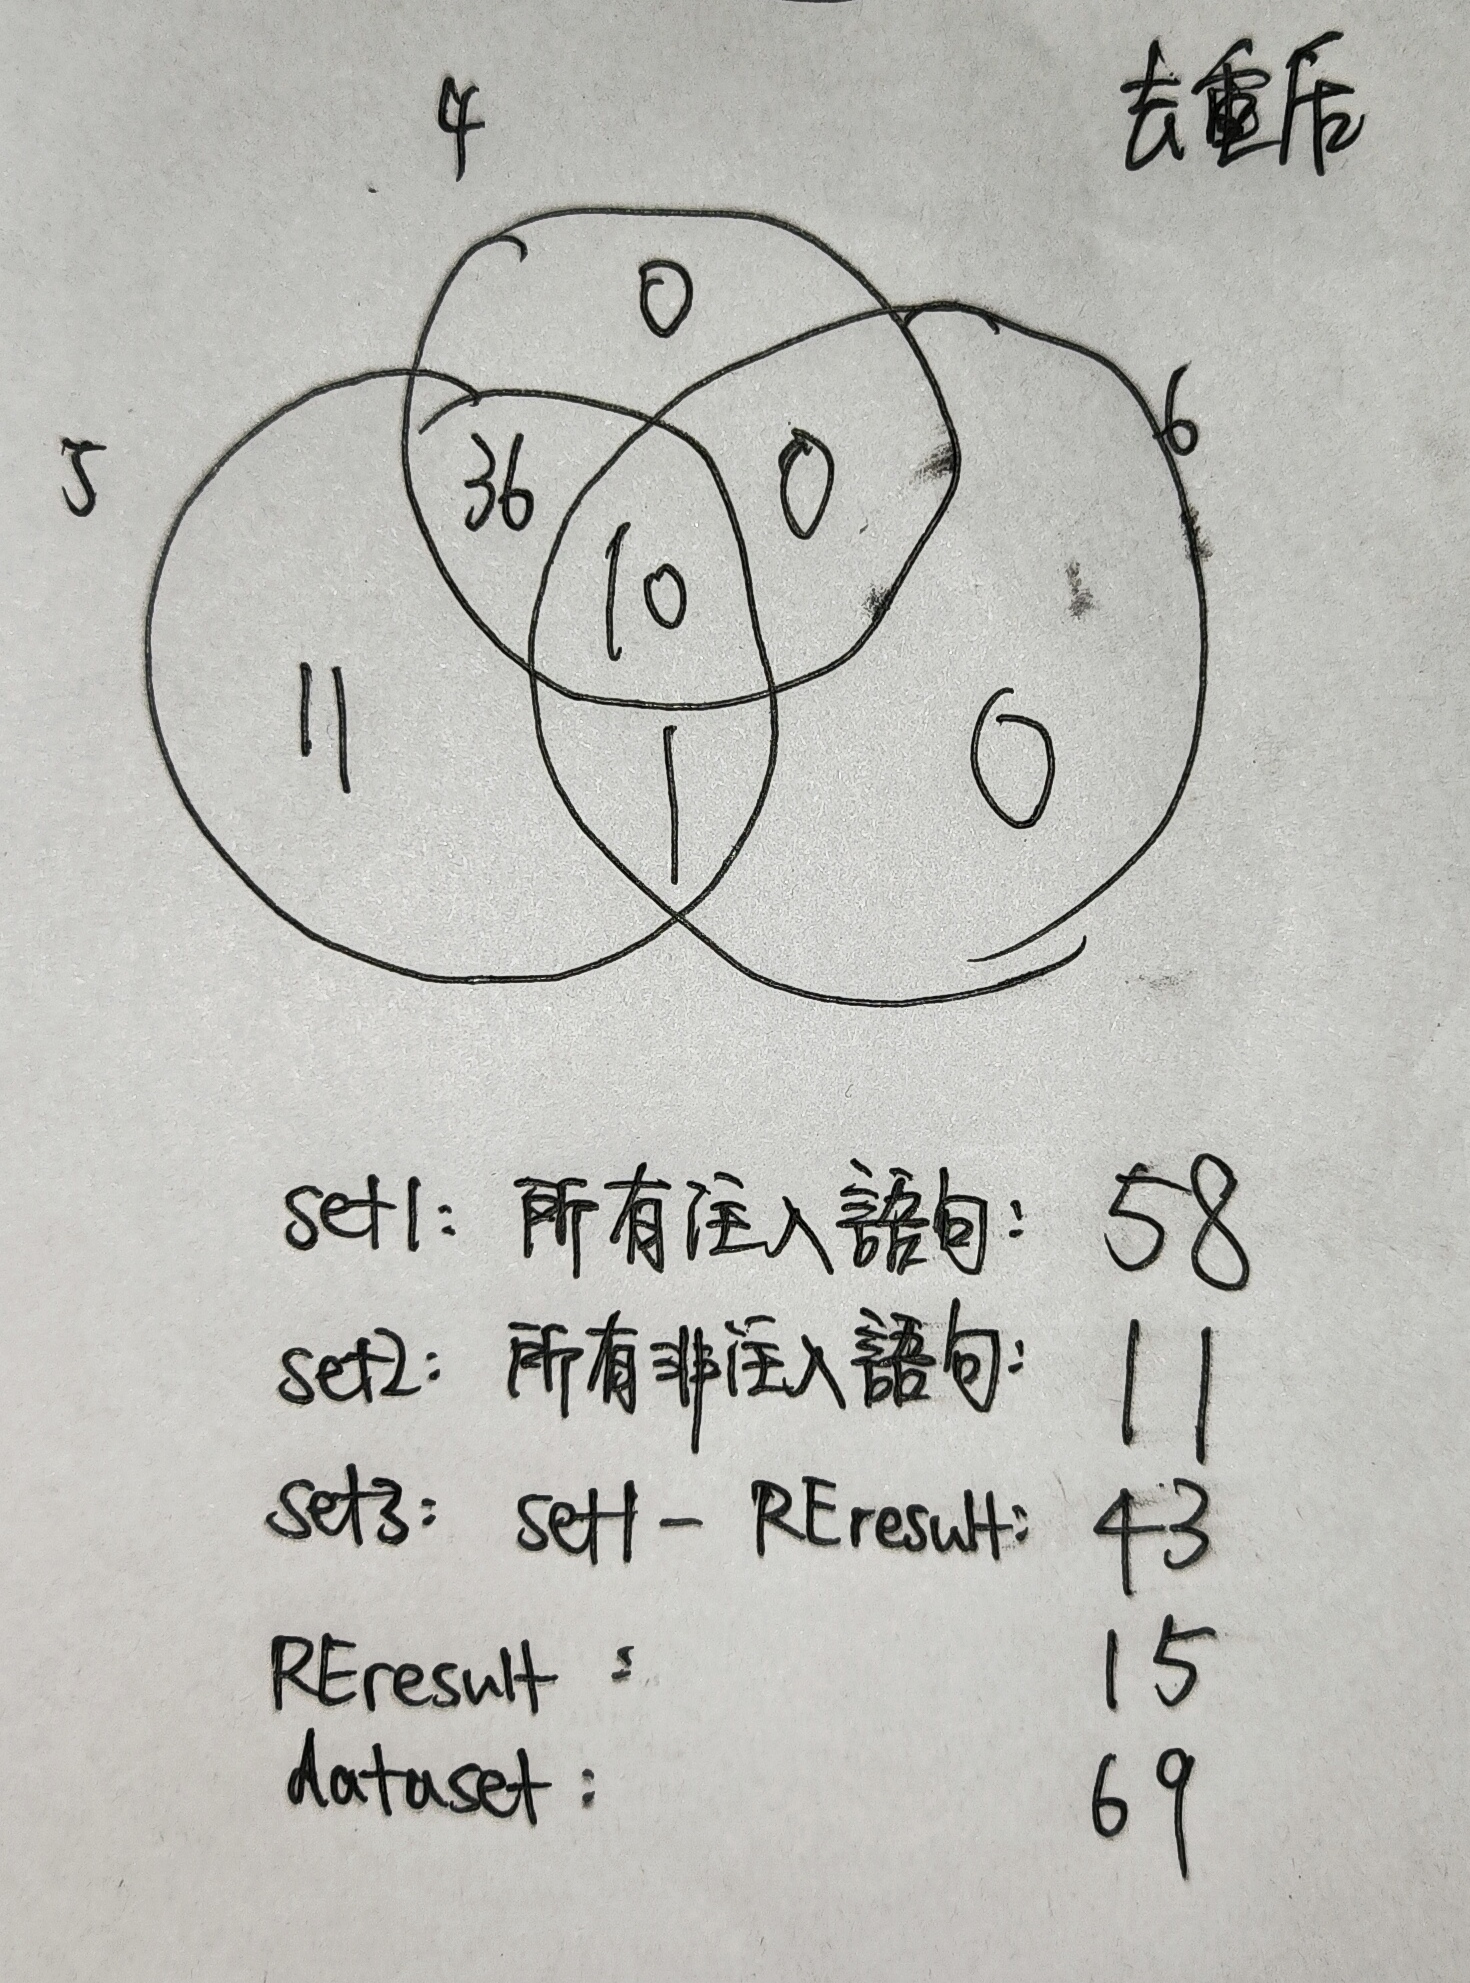 4
去重后
0
6
5
36
0
10
11
0
1
set1: 所有注入語句: 58
set2: 所有非注入語句: 11
set3: set1 - REresult: 43
REresult : 15
dataset : 69